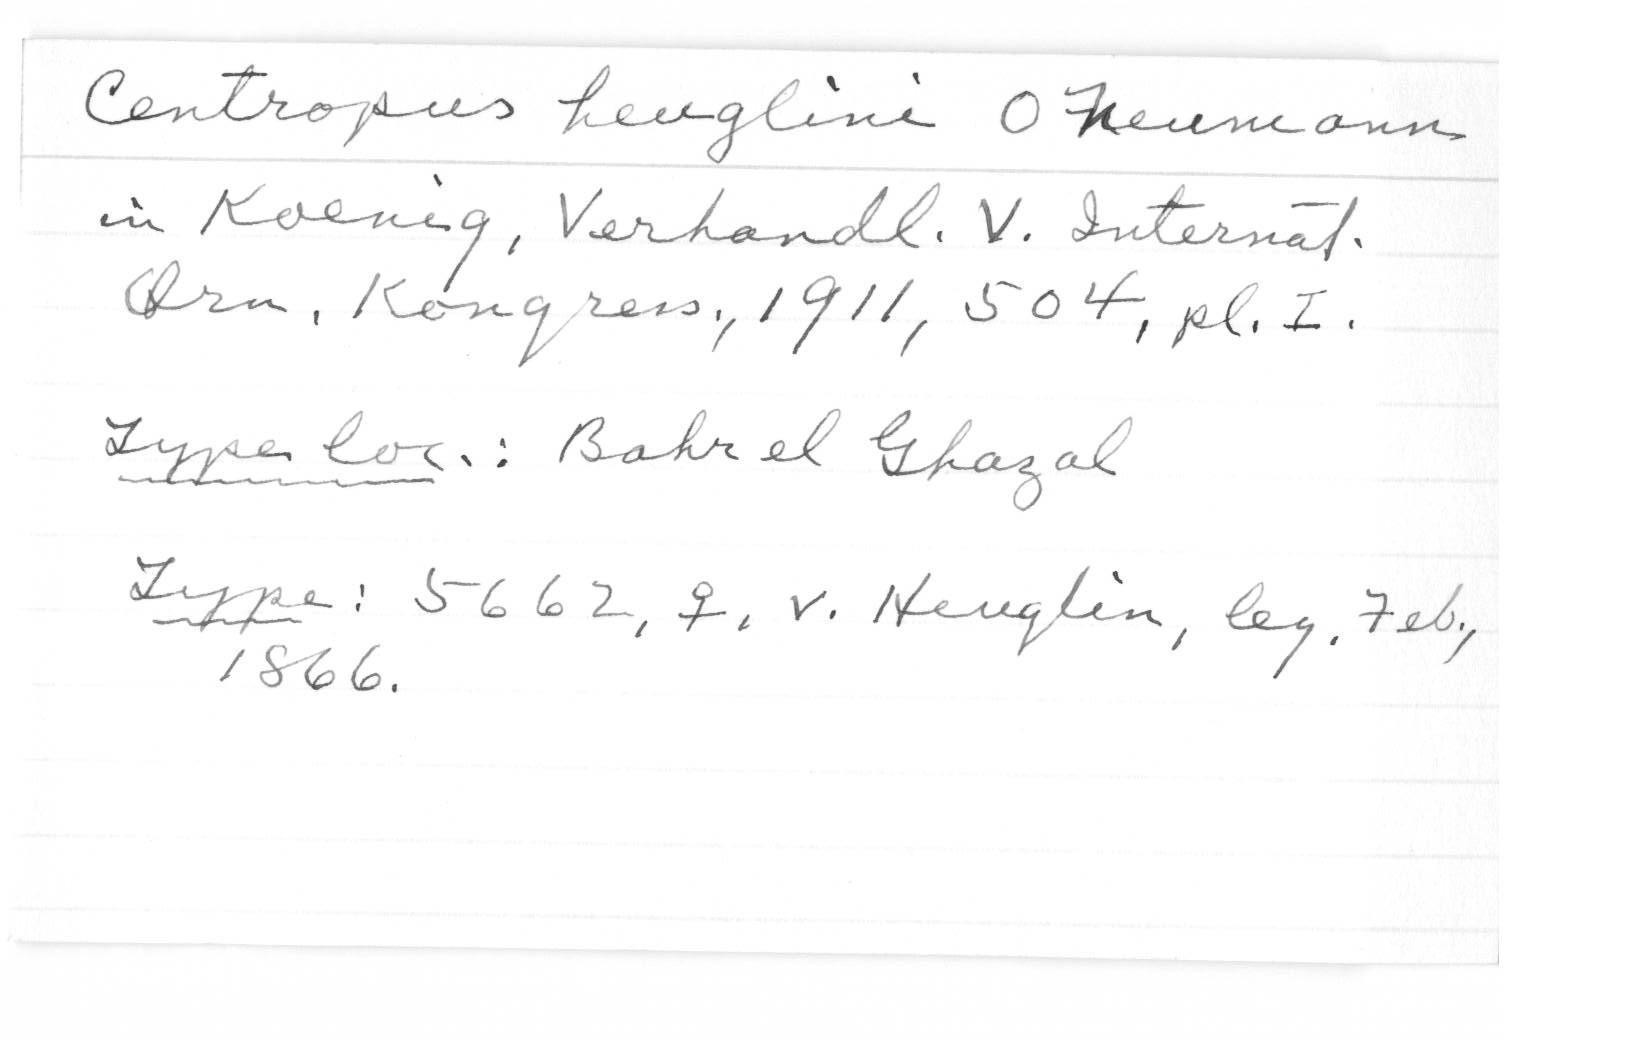 Centropus heuglini O Neumann
in Koenig, Verhandl. V. Internat.
Orn. Kongress., 1911, 504, pl. I.
Type loc.: Bahr el Ghazal
Type: 5662, ♀, v. Heuglin, leg. Feb.,
1866.